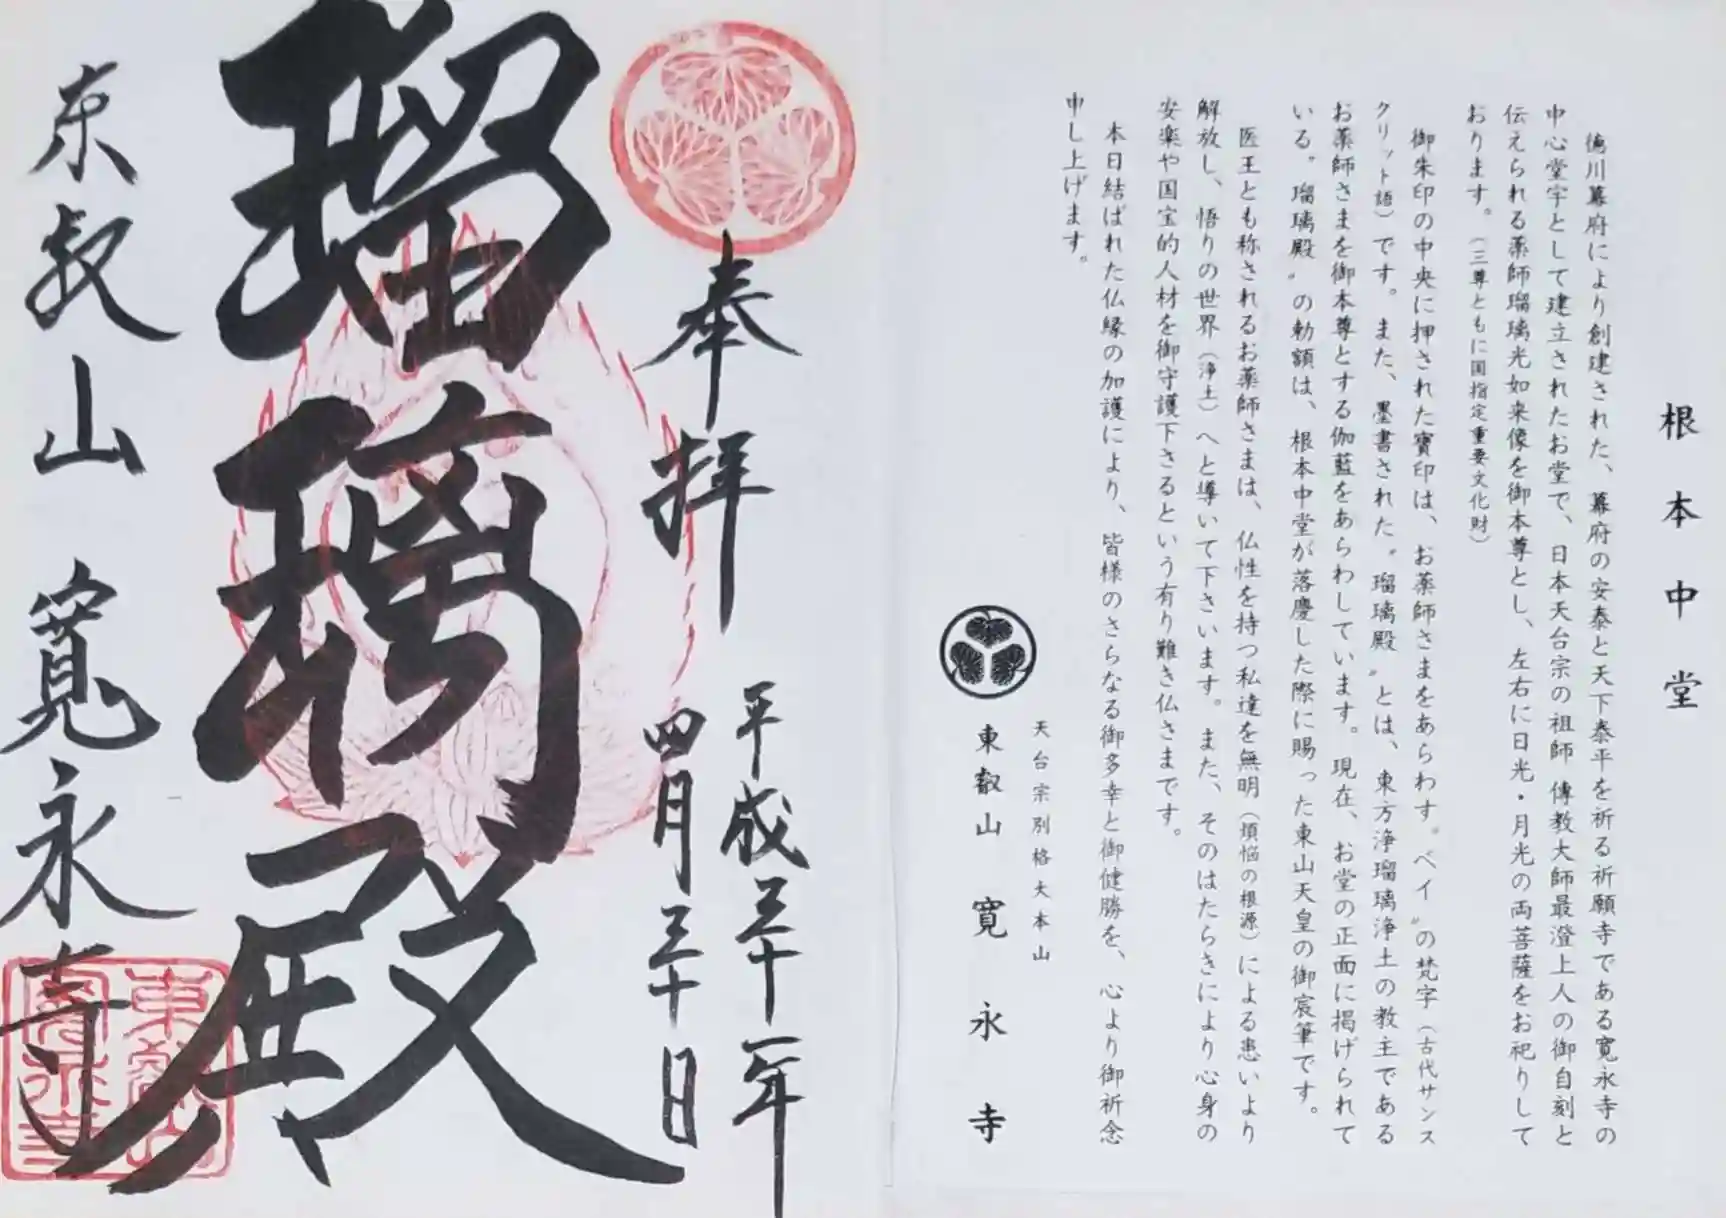 奉拝
平成三十一年
四月三十日
瑠璃殿
東叡山 寛永寺
東叡山
寛永寺
根本中堂
徳川幕府により創建された、幕府の安泰と天下泰平を祈る祈願寺である寛永寺の
中心堂宇として建立されたお堂で、日本天台宗の祖師 傳教大師最澄上人の御自刻と
伝えられる薬師瑠璃光如来像を御本尊とし、左右に日光・月光の両菩薩をお祀りして
おります。(三尊ともに国指定重要文化財)
御朱印の中央に押された寶印は、お薬師さまをあらわす〝ベイ〟の梵字(古代サンス
クリット語)です。また、墨書された〝瑠璃殿〟とは、東方浄瑠璃浄土の教主である
お薬師さまを御本尊とする伽藍をあらわしています。現在、お堂の正面に掲げられて
いる〝瑠璃殿〟の勅額は、根本中堂が落慶した際に賜った東山天皇の御宸筆です。
医王とも称されるお薬師さまは、仏性を持つ私達を無明(煩悩の根源)による患いより
解放し、悟りの世界(浄土)へと導いて下さいます。また、そのはたらきにより心身の
安楽や国宝的人材を御守護下さるという有り難き仏さまです。
本日結ばれた仏縁の加護により、皆様のさらなる御多幸と御健勝を、心より御祈念
申し上げます。
天台宗別格大本山
東叡山 寛永寺